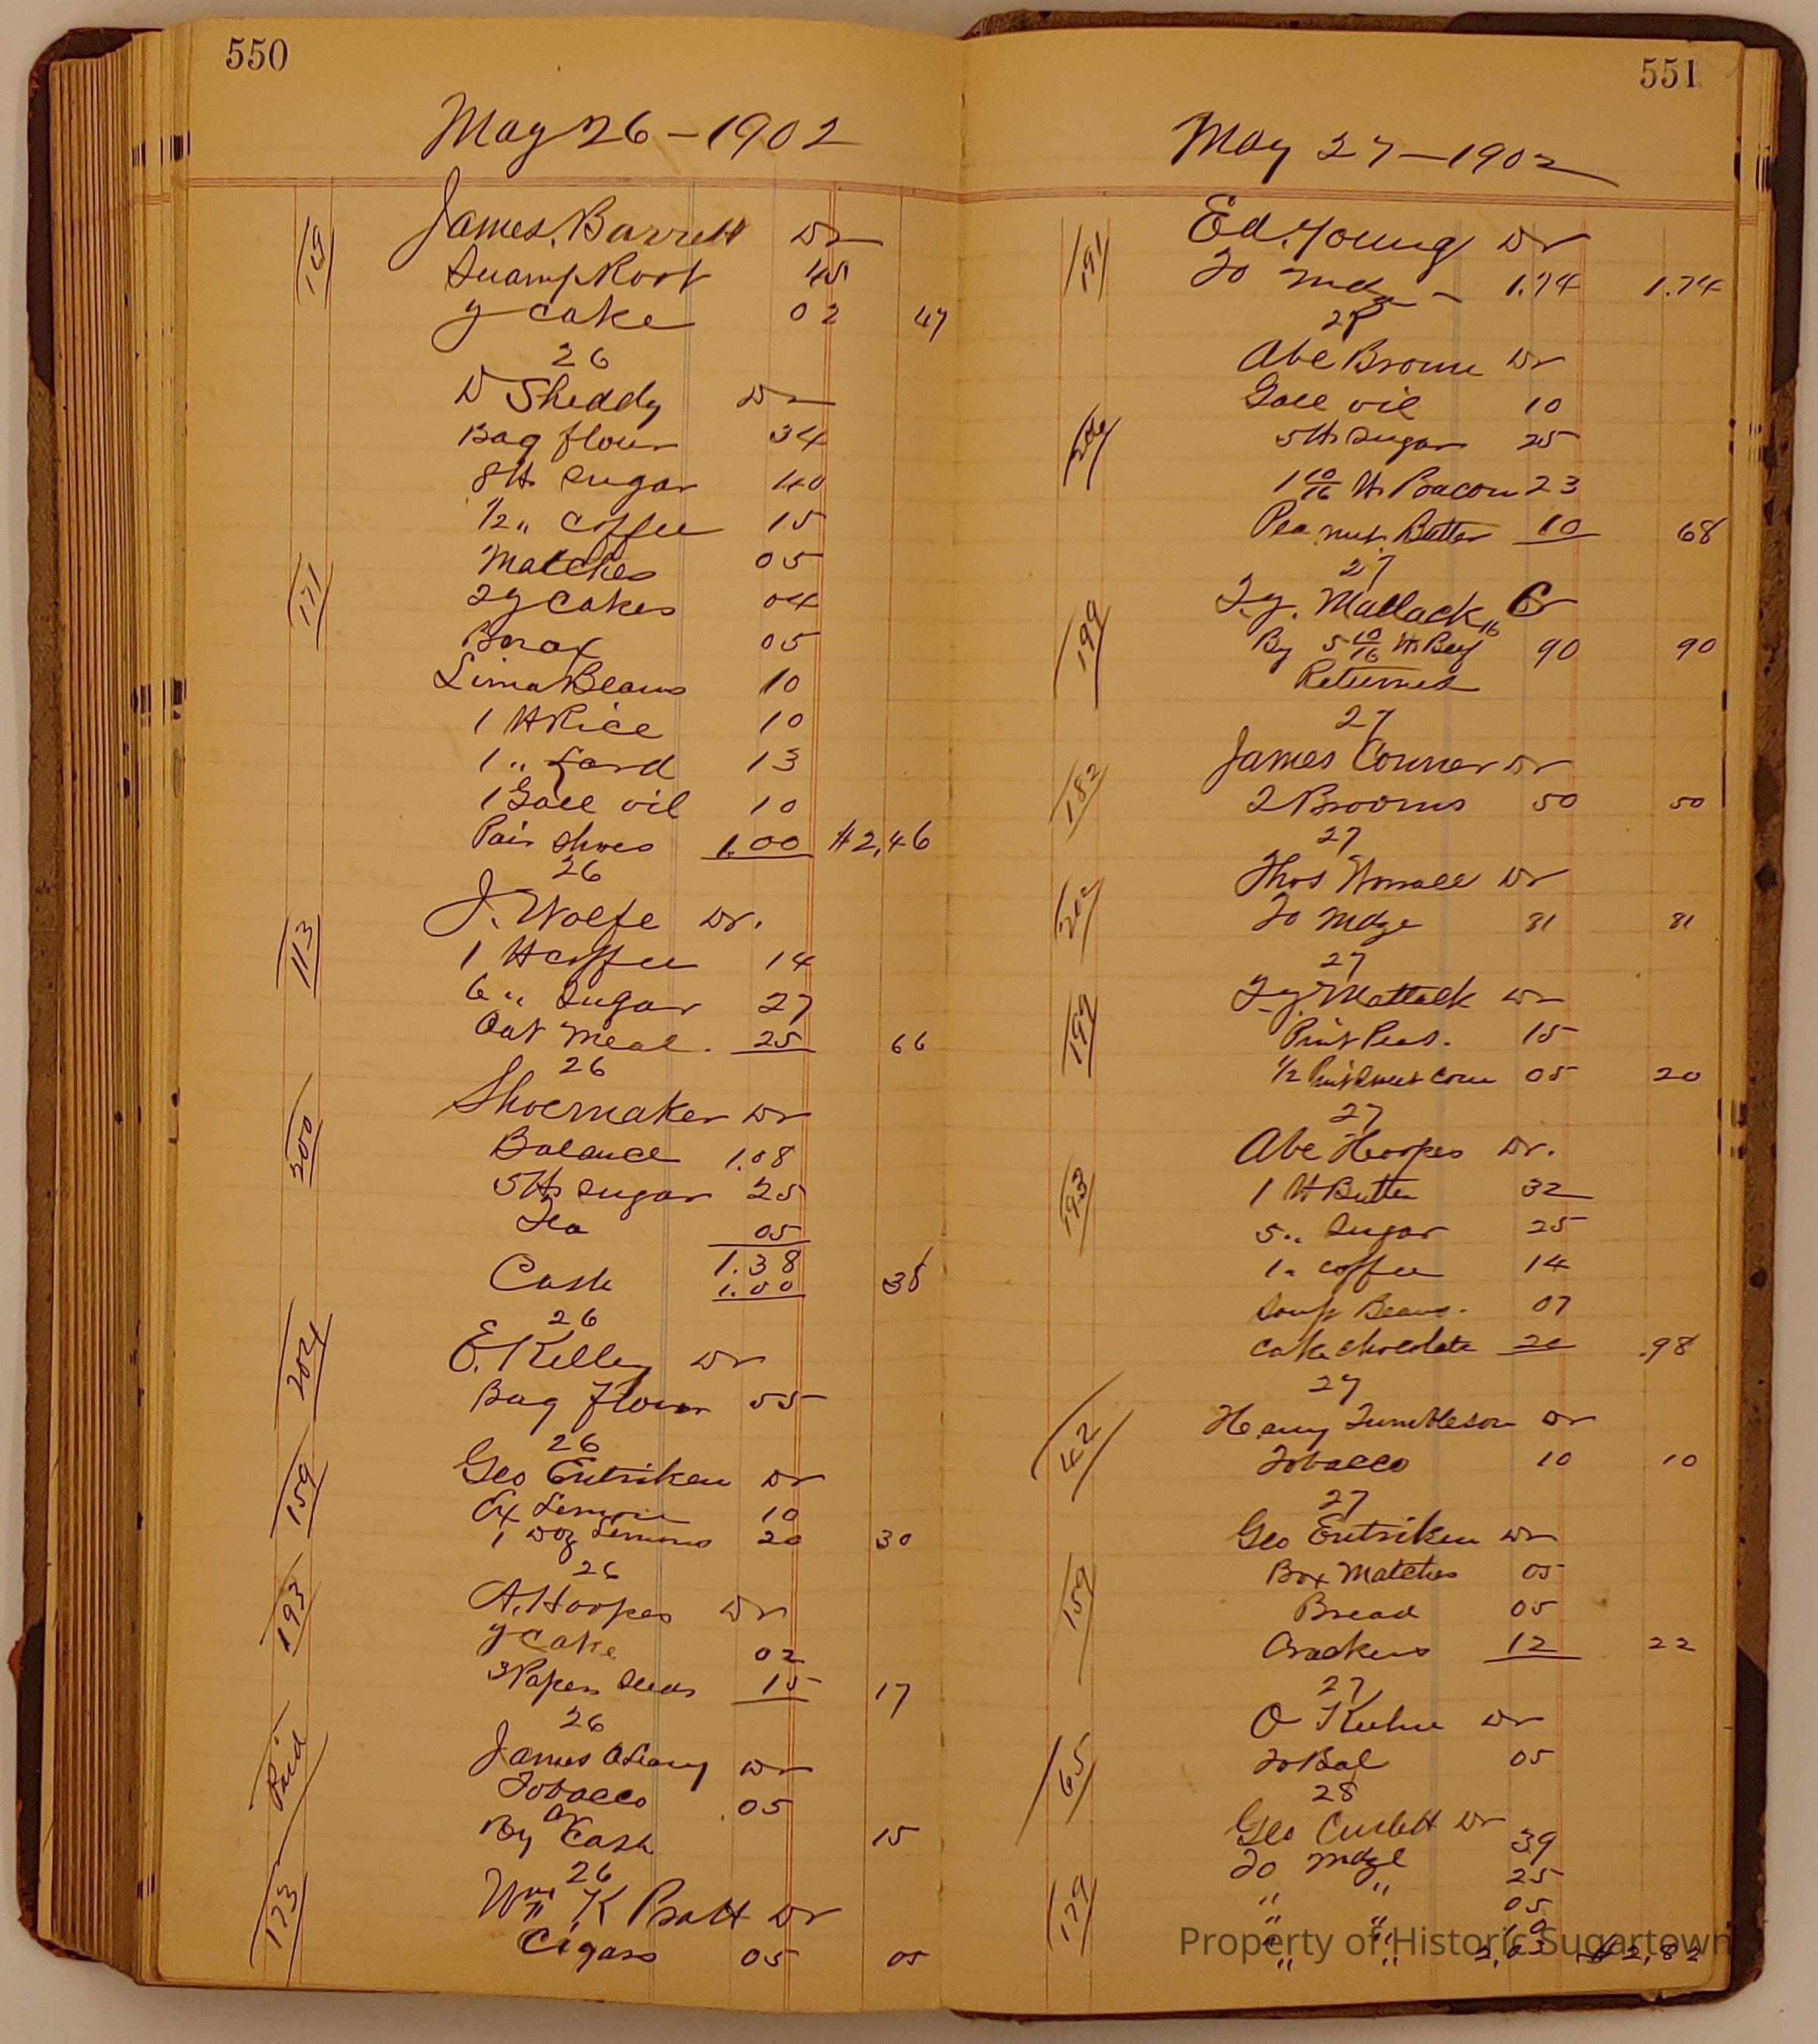 550
May 26 - 1902
149
James Barrett Dr
Swamp Root 45
y cake 02 47
26
D Sheddy Dr
Bag flour 34
8 lb sugar 40
1/2 " coffee 15
171
Matches 05
2 y cakes 04
Borax 05
Lima Beans 10
1 lb Rice 10
1 " Lard 13
1 Gall oil 10
Pair shoes 1.00 $2,46
26
113
J. Wolfe Dr.
1 lb coffee 14
6 " sugar 27
Oat meal. 25 66
26
200
Shoemaker Dr
Balance 1.08
5 lbs sugar 25
Tea 05
1.38
Cash 1.00 38
26
204
E. Kelley Dr
Bag flour 55
26
159
Geo Entriken Dr
Ex Lemon 10
1 Doz Lemons 20 30
26
193
A. Hoopes Dr
y cake 02
3 Papers seeds 15 17
26
Paid
James OLeary Dr
Tobacco .05
By Cash 15
26
173
Wm K Pratt Dr
Cigars 05 05
551
May 27 - 1902
191
Ed. Young Dr
To mdge - 1.74 1.74
27
Abe Brown Dr
Gall oil 10
206
5 lb sugar 25
1 10/16 lb Bacon 23
Peanut Butter 10 68
27
199
T.J. Matlack Cr
By 5 10/16 lb Beef 90 90
Returned
27
182
James Conner Dr
2 Brooms 50 50
27
202
Thos Worrall Dr
To mdge 81 81
27
199
T.J. Mattack Dr
Pint Peas. 15
1/2 Pint sweet corn 05 20
27
193
Abe Hoopes Dr.
1 lb Butter 32
5 " sugar 25
1 " coffee 14
Soup Beans. 07
Cake chocolate 20 .98
27
42
Henry Tumbleson Dr
Tobacco 10 10
27
159
Geo Entriken Dr
Box Matches 05
Bread 05
Crackers 12 22
27
65
O Kuhn Dr
To Bal 05
28
Geo Dr
179
To mdge 39
" 25
" " 05
" " 10
" " 2,03 $2,82
Property of Historic Sugartown